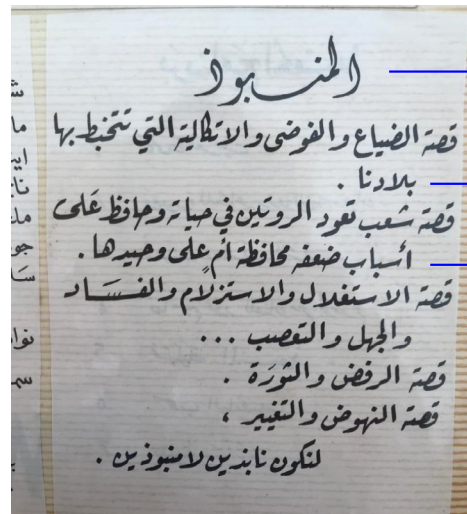 المنبوذ
قصة الضياع والفوضى والاتكالية التي تتخبط بها
بلادنا .
قصة شعب تعود الروتين في حياته وحافظ على
أسباب ضعفه محافظة أم على وحيدها .
قصة الاستغلال والاستزلام والفساد
والجهل والتعصب ...
قصة الرفض والثورة .
قصة النهوض والتغيير ،
لنكون نابذين لا منبوذين .